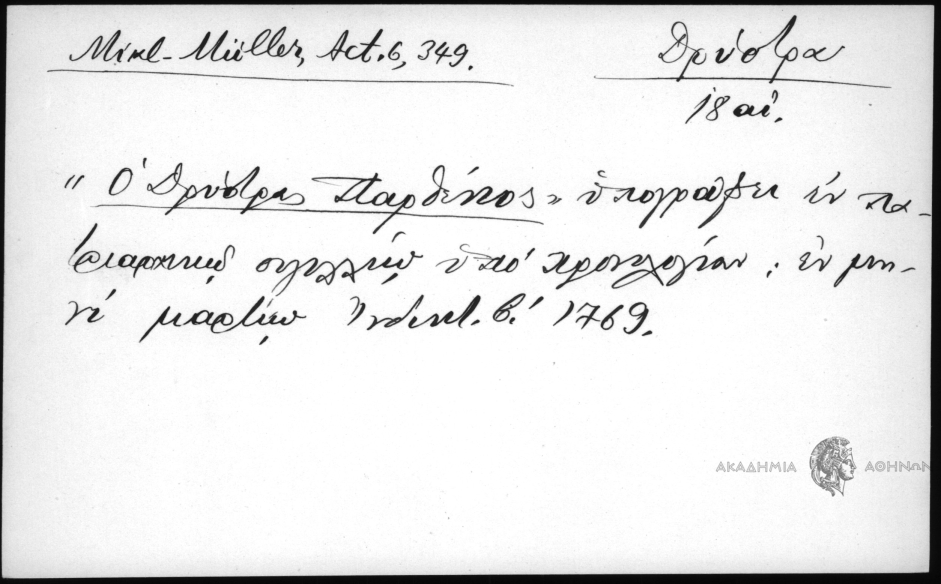 Mikl-Müller, Act. 6, 349.
Δρύστρα
18 αἰ.
"Ὁ Δρύστρας Παρθένιος" ὑπογράφει ἐν πα-
τριαρχικῷ σιγιλλίῳ ὑπό χρονολογίαν: ἐν μη-
νί μαρτίῳ Ἰνδικτ. β.' 1769.
ΑΚΑΔΗΜΙΑ ΑΘΗΝΩΝ